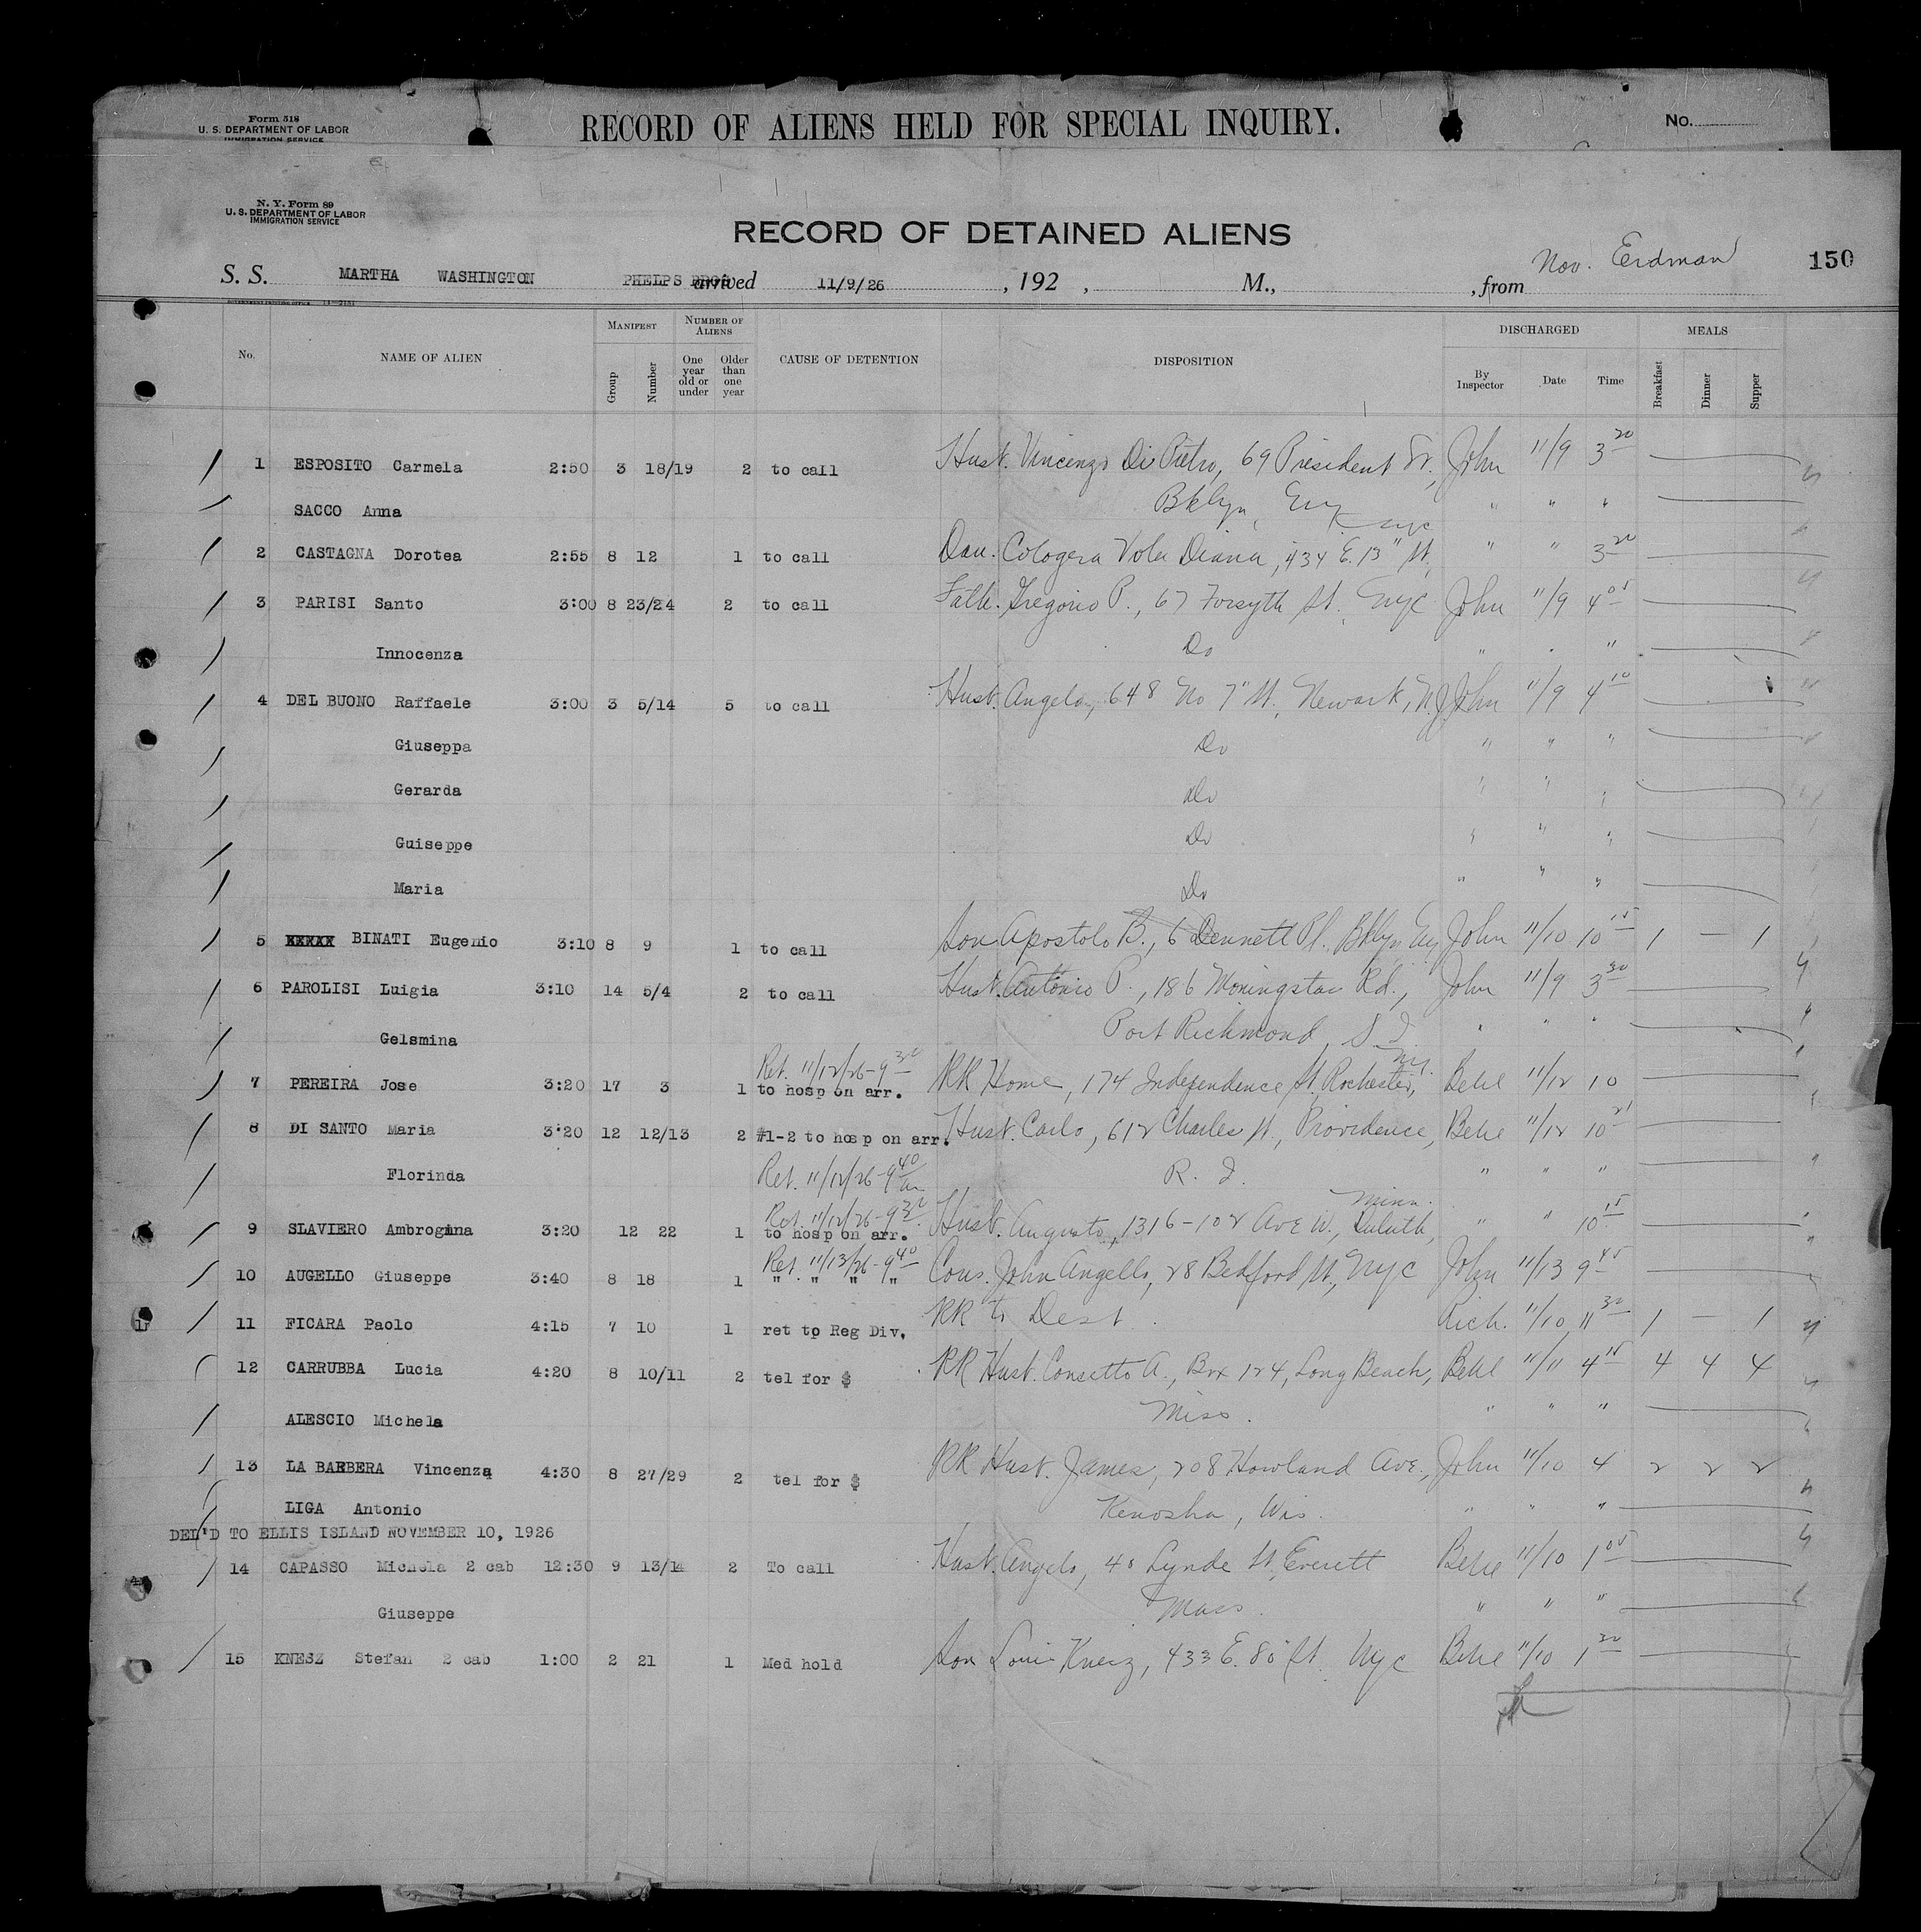 Form 518
U. S. DEPARTMENT OF LABOR
IMMIGRATION SERVICE
RECORD OF ALIENS HELD FOR SPECIAL INQUIRY.
No.
N. Y. Form 89
U. S. DEPARTMENT OF LABOR
IMMIGRATION SERVICE
RECORD OF DETAINED ALIENS
S. S. MARTHA WASHINGTON PHELPS BROS arrived 11/9/26, 192 , M., , from Nov. Erdman 150
No. NAME OF ALIEN MANIFEST Group Number NUMBER OF ALIENS One year old or under Older than one year CAUSE OF DETENTION DISPOSITION DISCHARGED By Inspector Date Time MEALS Breakfast Dinner Supper
1 ESPOSITO Carmela 2:50 3 18/19 2 to call Husb. Vincenzo Di Pietro, 69 President St., John 11/9 3 20
SACCO Anna Bklyn, " " "
NYC
2 CASTAGNA Dorotea 2:55 8 12 1 to call Dau. Cologera Vola Diana, 434 E. 13" St, " " 3 20
3 PARISI Santo 3:00 8 23/24 2 to call Fath. Gregorio P., 67 Forsyth St. NYC John 11/9 4 05
Innocenza Do " " "
4 DEL BUONO Raffaele 3:00 3 5/14 5 to call Husb. Angelo, 648 No 7" St., Newark, N.J. John 11/9 4 10
Giuseppa Do " " "
Gerarda Do " " "
Guiseppe Do " " "
Maria Do " " "
5 XXXXX BINATI Eugenio 3:10 8 9 1 to call Son Apostolo B., 6 Dennett Pl. Bklyn, John 11/10 10 15 1 — 1
6 PAROLISI Luigia 3:10 14 5/4 2 to call Husb. Antonio P., 186 Morningstar Rd., John 11/9 3 30
Gelsmina Port Richmond, S. I. " " "
Ret. 11/12/26 - 9 30 NY.
7 PEREIRA Jose 3:20 17 3 1 to hosp on arr. RR Home, 174 Independence St, Rochester, Behl 11/12 10
8 DI SANTO Maria 3:20 12 12/13 2 #1-2 to hosp on arr. Husb. Carlo, 612 Charles St., Providence, Behl 11/12 10
Florinda Ret. 11/12/26 - 9 40 am R. I. " " "
Ret. 11/12/26 - 9 30 Minn.
9 SLAVIERO Ambrogina 3:20 12 22 1 to hosp on arr. Husb. Augusto, 1316 - 102 Ave W., Duluth, " " 10 15
Ret. 11/13/26 - 9 40
10 AUGELLO Giuseppe 3:40 8 18 1 " " " " Cous. John Angello, 28 Bedford St, NYC John 11/13 9 45
11 FICARA Paolo 4:15 7 10 1 ret to Reg Div. RR to Dest. Rich. 11/10 11 30 1 — 1
12 CARRUBBA Lucia 4:20 8 10/11 2 tel for $ RR Husb. Consetto A., Box 124, Long Beach, Behl 11/11 4 15 4 4 4
ALESCIO Michela Miss. " " "
13 LA BARBERA Vincenza 4:30 8 27/29 2 tel for $ RR Husb. James, 208 Howland Ave., John 11/10 4 2 2 2
LIGA Antonio Kenosha, Wis. " " "
DEL'D TO ELLIS ISLAND NOVEMBER 10, 1926
14 CAPASSO Michela 2 cab 12:30 9 13/14 2 To call Husb. Angelo, 40 Lynde St, Everett Behl 11/10 1 05
Giuseppe Mass. " " "
15 KNESZ Stefan 2 cab 1:00 2 21 1 Med hold Son Louis Knesz, 433 E. 80 St. NYC Behl 11/10 1 30